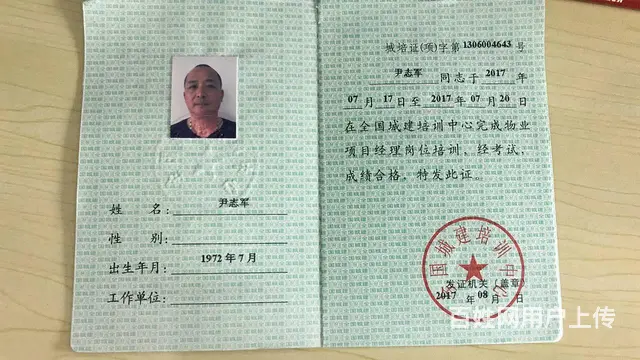 姓名：尹志军
性别：
出生年月：1972年7月
工作单位：
城培证(项)字第1306004643号
尹志军同志于2017年
07月17日至2017年07月20日
在全国城建培训中心完成物业
项目经理岗位培训、经考试，
成绩合格，特发此证。
全国城建培训中心
发证机关（盖章）
2017年08月 日
百姓网用户上传